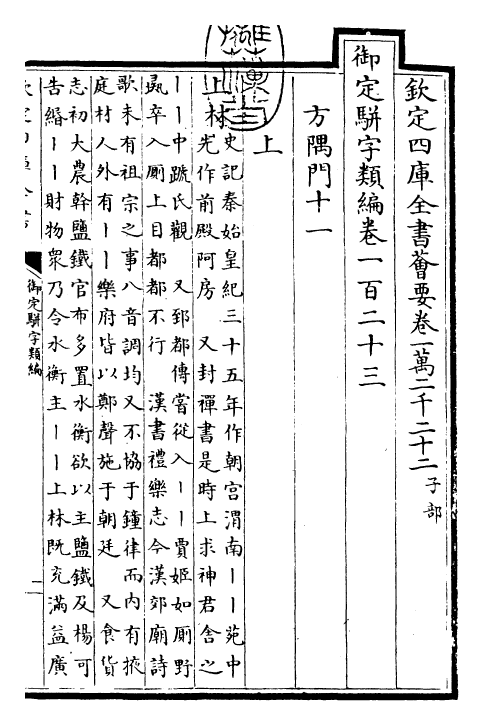 欽定四庫全書薈要卷一萬二千二十二子部
御定駢字類編卷一百二十三
方隅門十一
上
上林史記秦始皇紀三十五年作朝宫渭南丨丨苑中
先作前殿阿房 又封禪書是時上求神君舍之
丨丨中蹏氏觀 又郅都傳嘗從入丨丨賈姬如厠野
彘卒入厠上目都都不行 漢書禮樂志今漢郊廟詩
歌未有祖宗之事八音調均又不協于鐘律而内有掖
庭材人外有丨丨樂府皆以鄭聲施于朝廷 又食貨
志初大農幹鹽鐵官布多置水衡欲以主鹽鐵及楊可
告緡丨丨財物衆乃令水衡主丨丨上林既充滿益廣
御定駢字類編
一